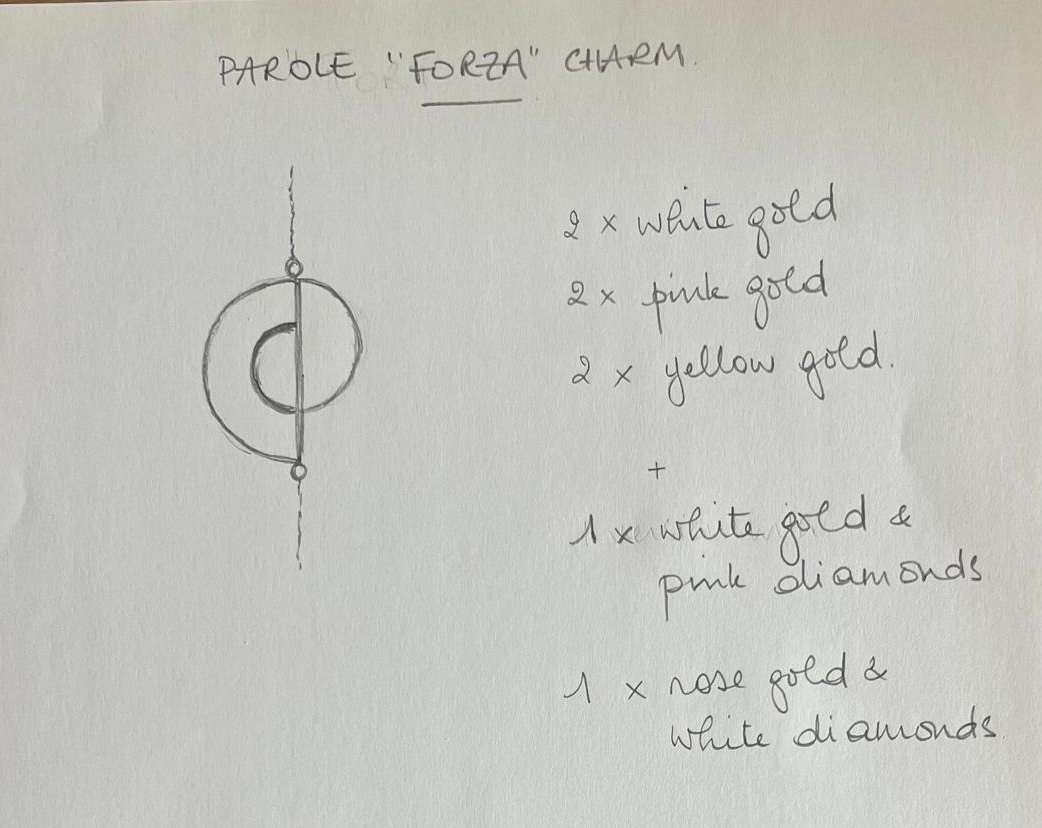 PAROLE "FORZA" CHARM.
2 x white gold
2 x pink gold
2 x yellow gold.
+
1 x white gold &
pink diamonds
1 x rose gold &
white diamonds